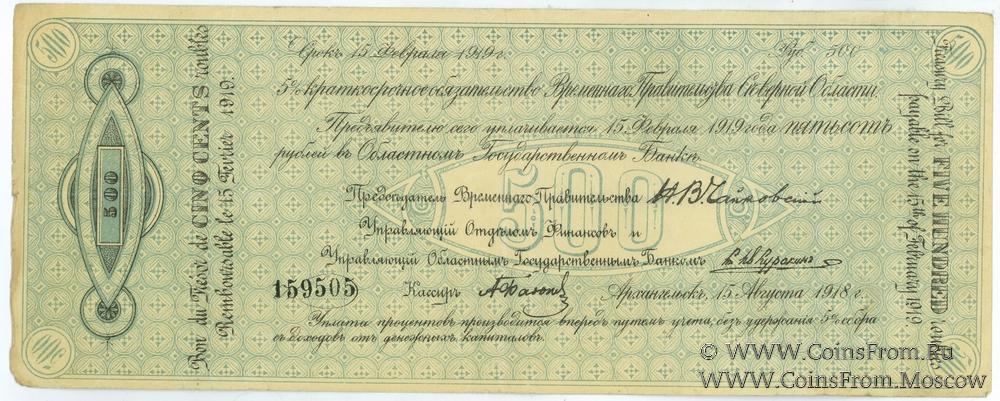 500
500
Срокъ 15 Февраля 1919 г.
Руб. 500
5% краткосрочное обязательство Временнаго Правительства Сѣверной Области.
Предъявителю сего уплачивается 15 Февраля 1919 года пятьсотъ
рублей въ Областномъ Государственномъ Банкѣ.
500
Предсѣдатель Временнаго Правительства Н. В. Чайковскій
Управляющій Отдѣломъ Финансовъ и
Управляющій Областнымъ Государственнымъ Банкомъ
159505
Кассиръ
Архангельскъ, 15 Августа 1918 г.
Уплата процентовъ производится впередъ путемъ учета, безъ удержанія 5% сбора
съ доходовъ отъ денежныхъ капиталовъ.
500
Bon du Trésor de CINQ CENTS roubles
Remboursable le 15 Fevrier 1919.
Treasury Bill for FIVE HUNDRED roubles
payable on the 15th of February 1919
500
500
© WWW.CoinsFrom.Ru
WWW.CoinsFrom.Moscow